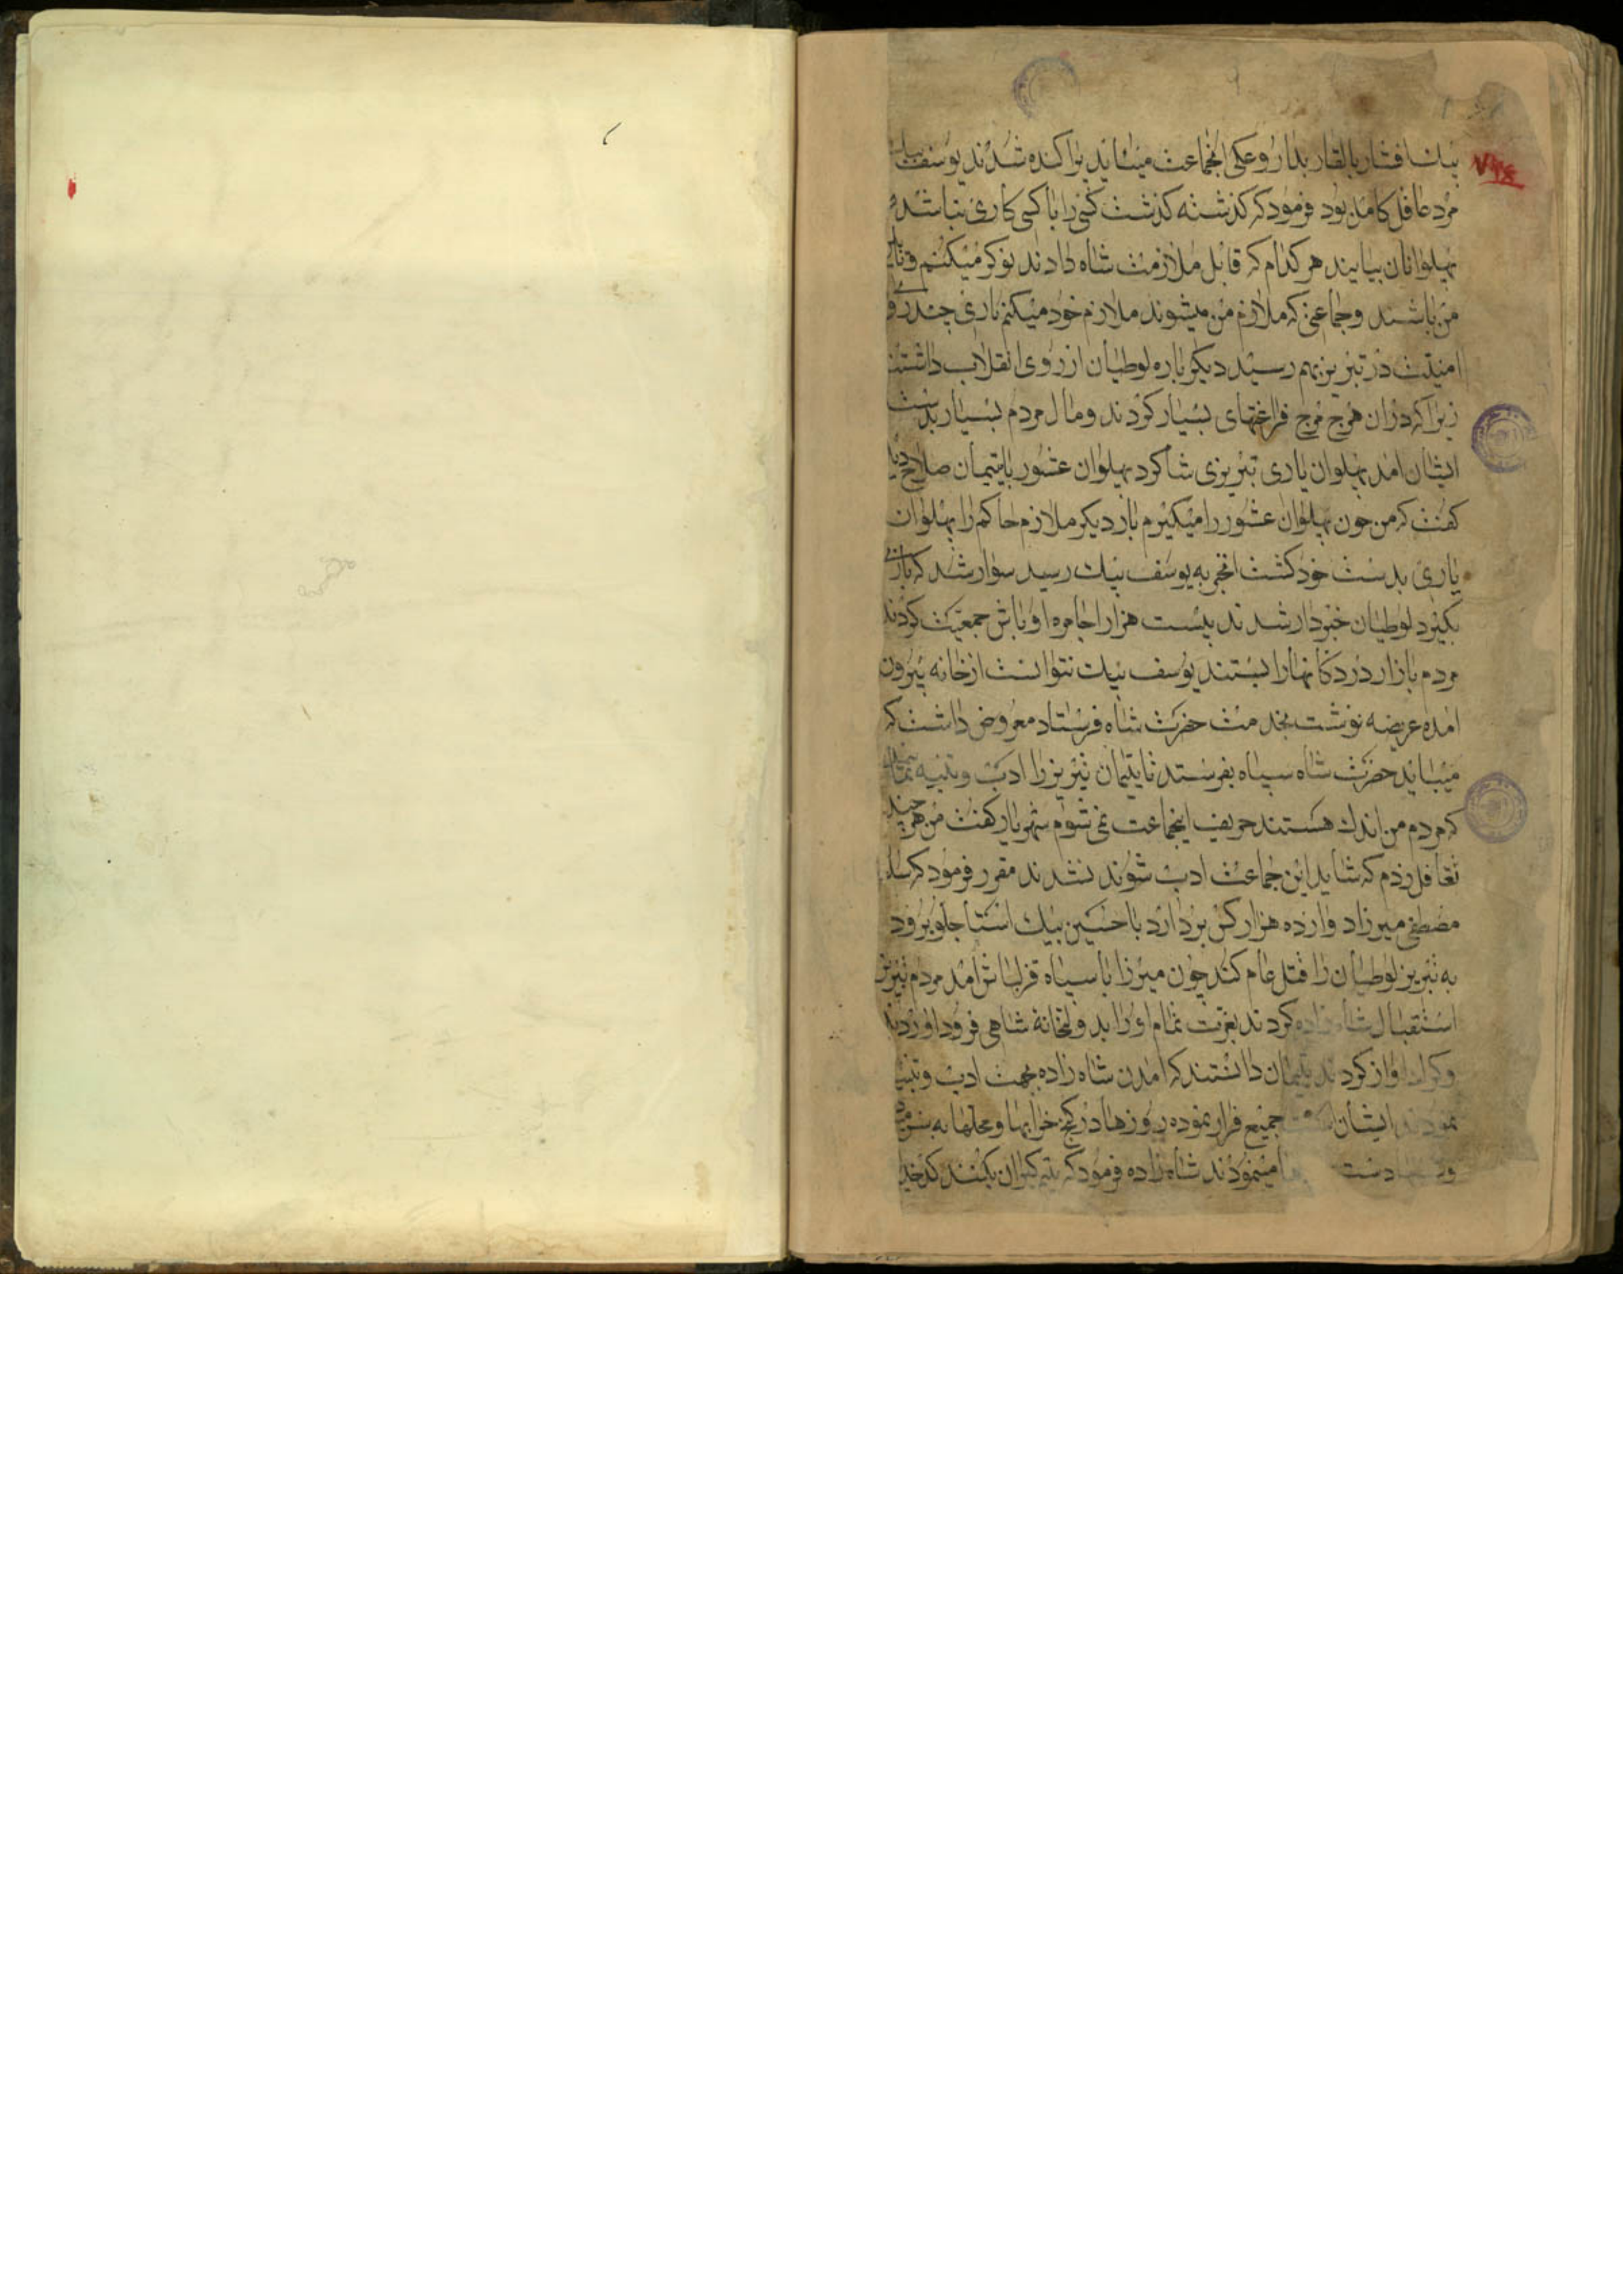 بیک افشار بالقار بدار و عکی انجماعت میشاید پراکنده شدند یوسف بیک
مرد عاقل کامل بود فرمود که گذشته گذشت کسی را با کسی کاری نباشد
پهلوانان بیایند هر کدام که قابل ملازمت شاه دادند نوکر میکنم و
من باشند و جماعتی که ملازم من میشوند ملازم خود میکنم باری چند رو
امنیت در تبریز بهم رسید دیگر باره لوطیان از روی انقلاب داشتند
زیرا که دران هرج مرج فراغتهای بسیار کردند و مال مردم بسیار بدست
ایشان امد پهلوان یاری تبریزی شاکرد پهلوان عشور بایتیمان صلاح دید
کفت که من چون پهلوان عشور را میکیرم بار دیکر ملازم حاکم را پهلوان
یاری بدست خود کشت انخبر به یوسف بیک رسید سوار شد که یاری
بکیرد لوطیان خبردار شدند بیست هزار اجامره اوباش جمعیت کردند
مردم بازار در دکانهارا بستند یوسف بیک نتوانست از خانه بیرون
امده عریضه نوشت بخدمت حضرت شاه فرستاد معروض داشت که
میباید حضرت شاه سپاه بفرستد تا یتیمان تبریز را ادب و تنبیه نماید
که مردم من اندک هستند حریف اینجماعت نمی شوم شهریار کفت من هر چند
تغافل زدم که شاید این جماعت ادب شوند نشدند مقرر فرمود که
مصطفی میرزا دوازده هزار کس بردارد با حسین بیک استاجلو برود
به تبریز لوطیان را قتل عام کند چون میرزا با سپاه قزلباش امد مردم تبریز
استقبال شاه زاده کردند بعزت تمام اورا بدولتخانه شاهی فرود اوردند
و کردند یتیمان دانستند که امدن شاه زاده بجهت ادب و تنبیه
نمودن ایشان است جمیع فرار نموده روزها در کنج خرابها و محلها به
و دست میشمودند شاه زاده فرمود که بتیم کیران بکنند کدخدا